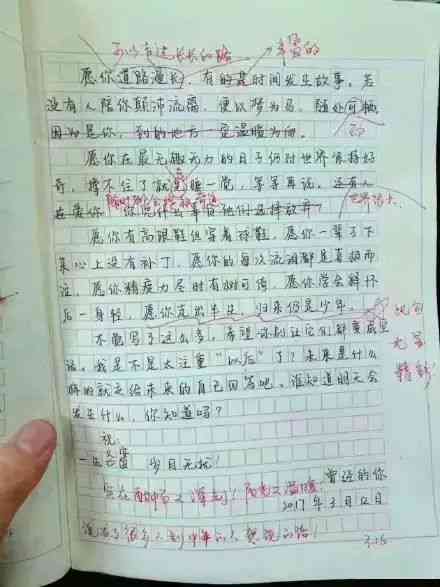 愿你道路漫长，有的是时间发生故事。若
没有人陪你颠沛流离，便以梦为马，随处可栖
因为是你，到的地方一定温暖为而。
愿你在最无趣无力的日子仍对世界保持好
奇，撑不住了就睡一觉，等等再说，还有人
在爱你，你凭什么事
愿你有高跟鞋但穿着球鞋，愿你一辈子下
来心上没有补丁，愿你的每次流泪都是喜极而
泣，愿你精疲力尽时有树可倚，愿你学会释怀
后一身轻，愿你走出半生，归来仍是少年。
不觉写了这么多，希望你别让它们都变成空
话，我是不是太注重“以后”了？未来是什么
样的就交给未来的自己回答吧，谁知道明天会
发生什么，你知道吗？
祝
岁月无忧！
曾经的你
2017年3月12日
实在
深刻！
温暖
很多人到中年的人
3.15
丰富的
精彩！